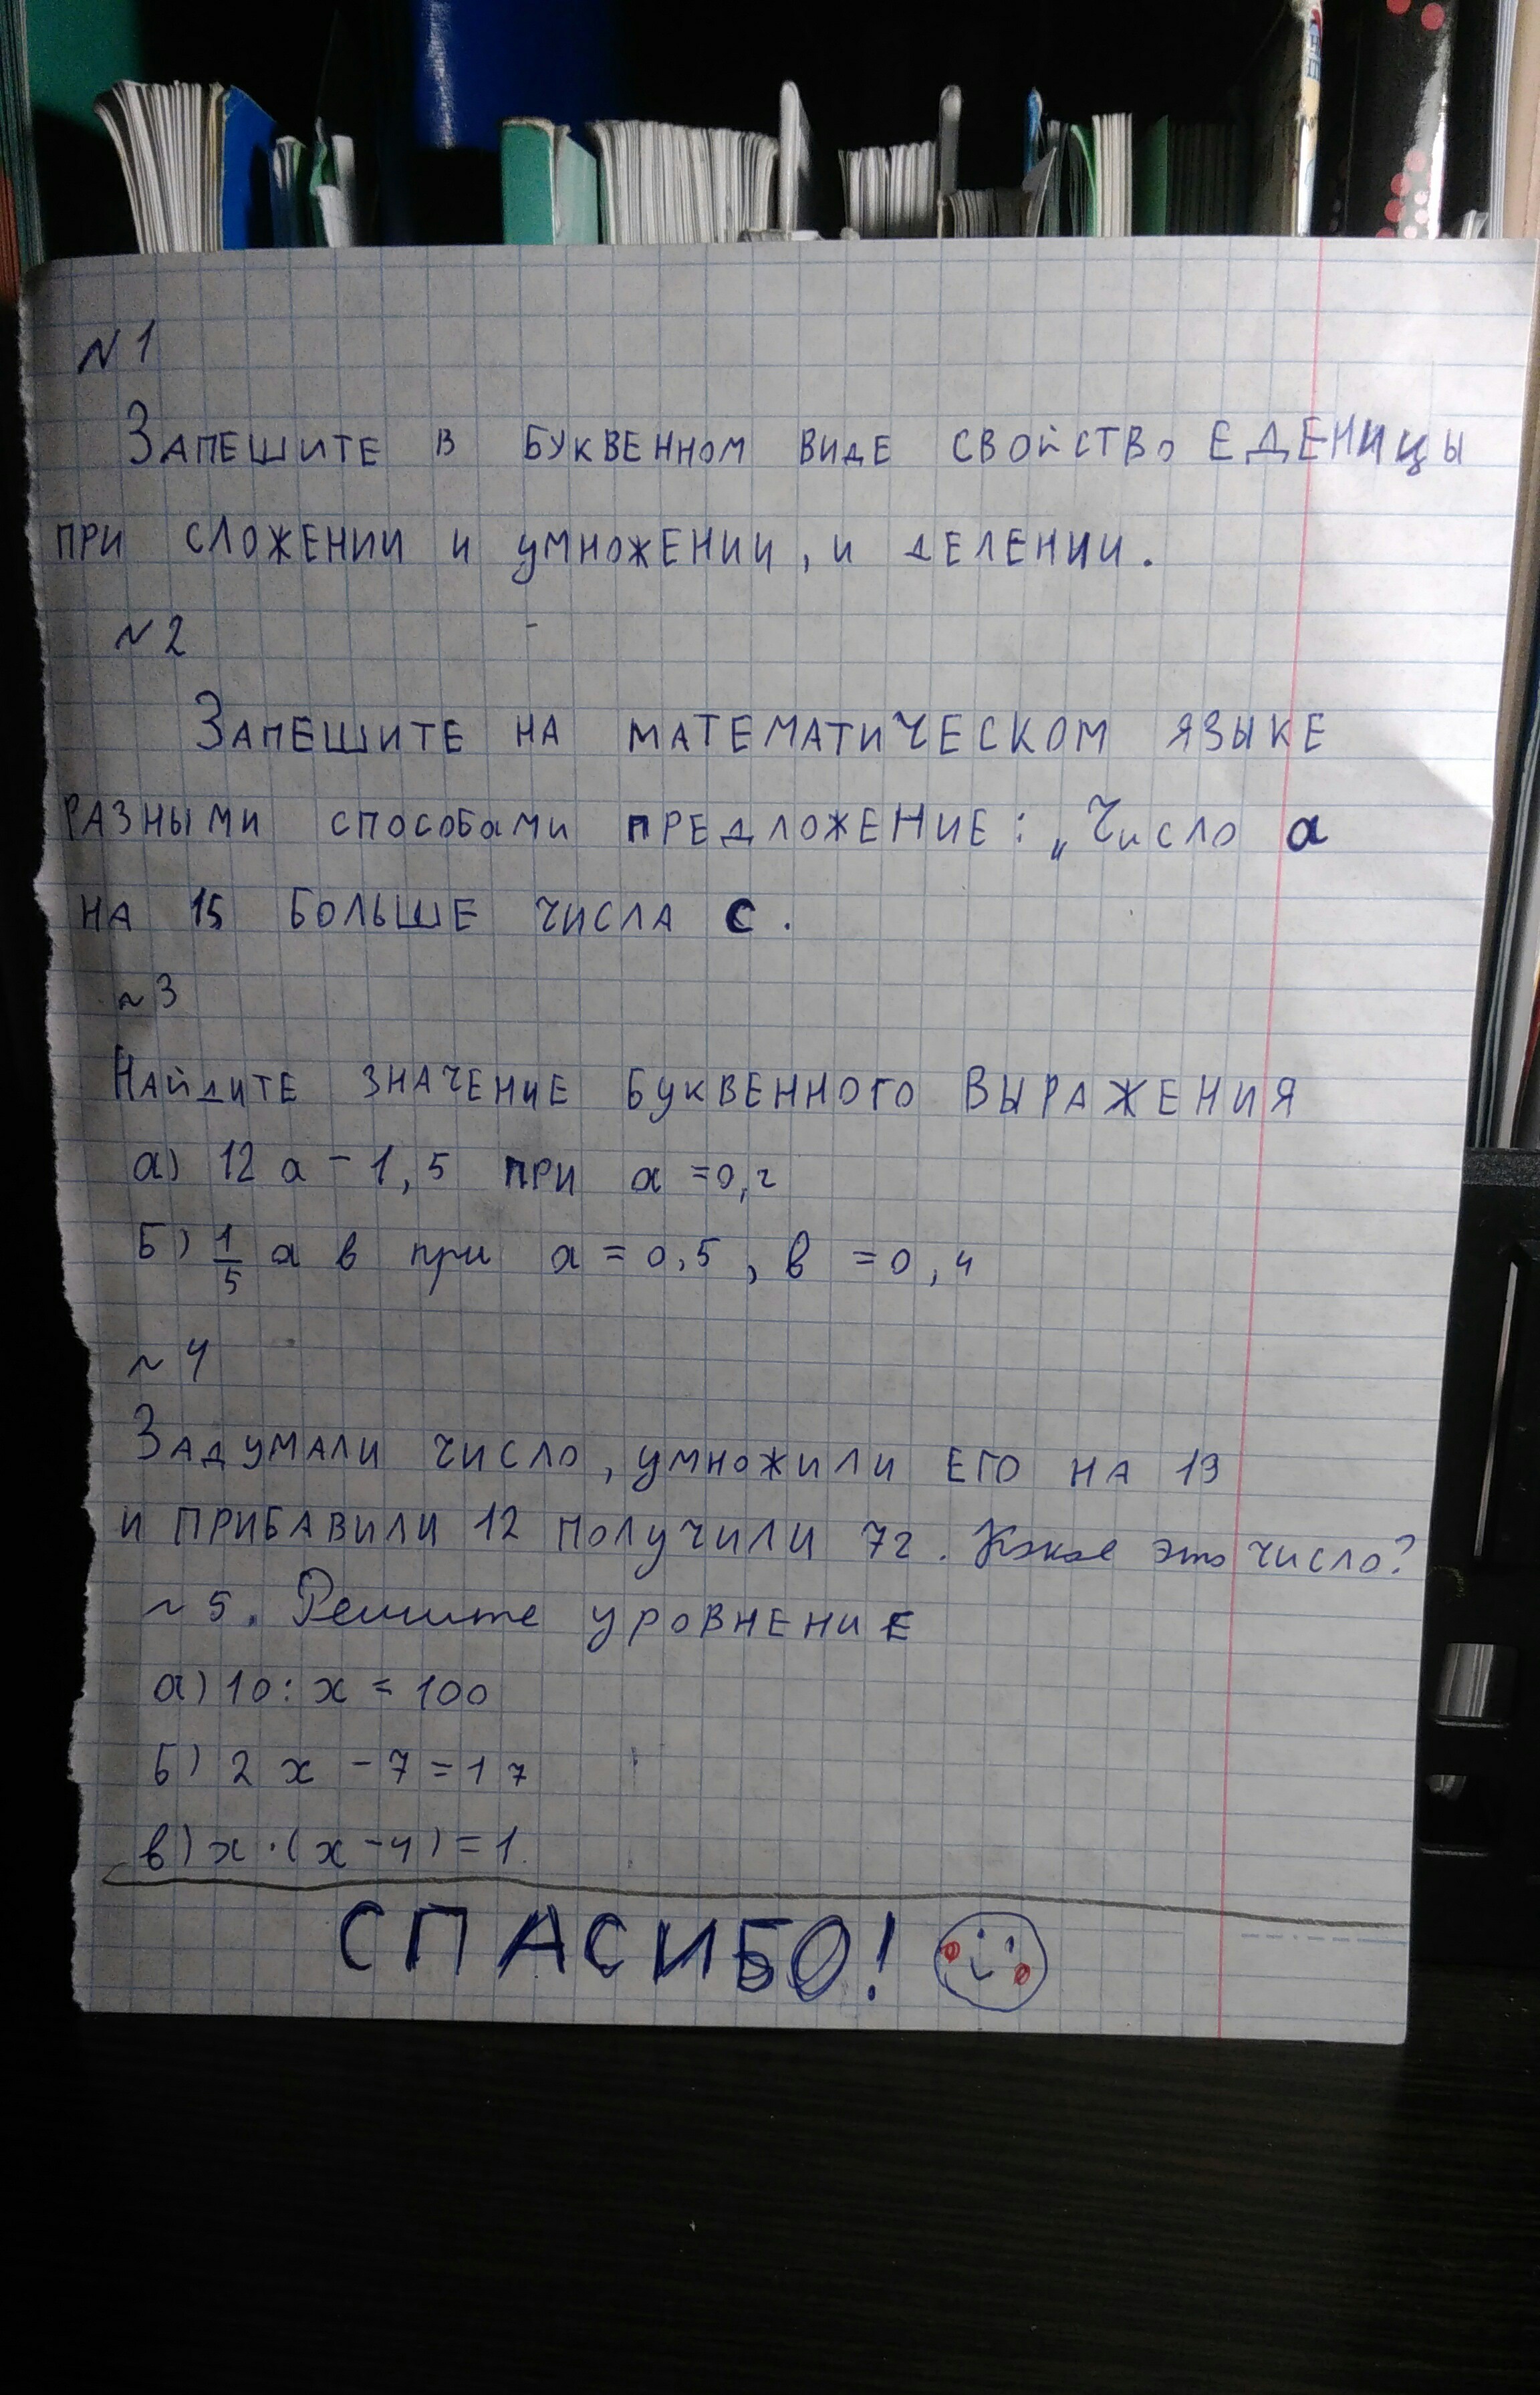 N 1
Запешите в буквенном виде свойство еденицы
при сложении и умножении, и делении.
N 2
Запешите на математическом языке
разными способами предложение: „Число a
на 15 больше числа c.
N 3
Найдите значение буквенного выражения
а) 12 a - 1,5 при a = 0,2
Б) 1/5 a в при a = 0,5, в = 0,4
N 4
Задумали число, умножили его на 19
и прибавили 12 получили 72. Какое это число?
N 5. Решите уровнение
а) 10 : x = 100
Б) 2 x - 7 = 17
в) x · (x - 4) = 1.
СПАСИБО!